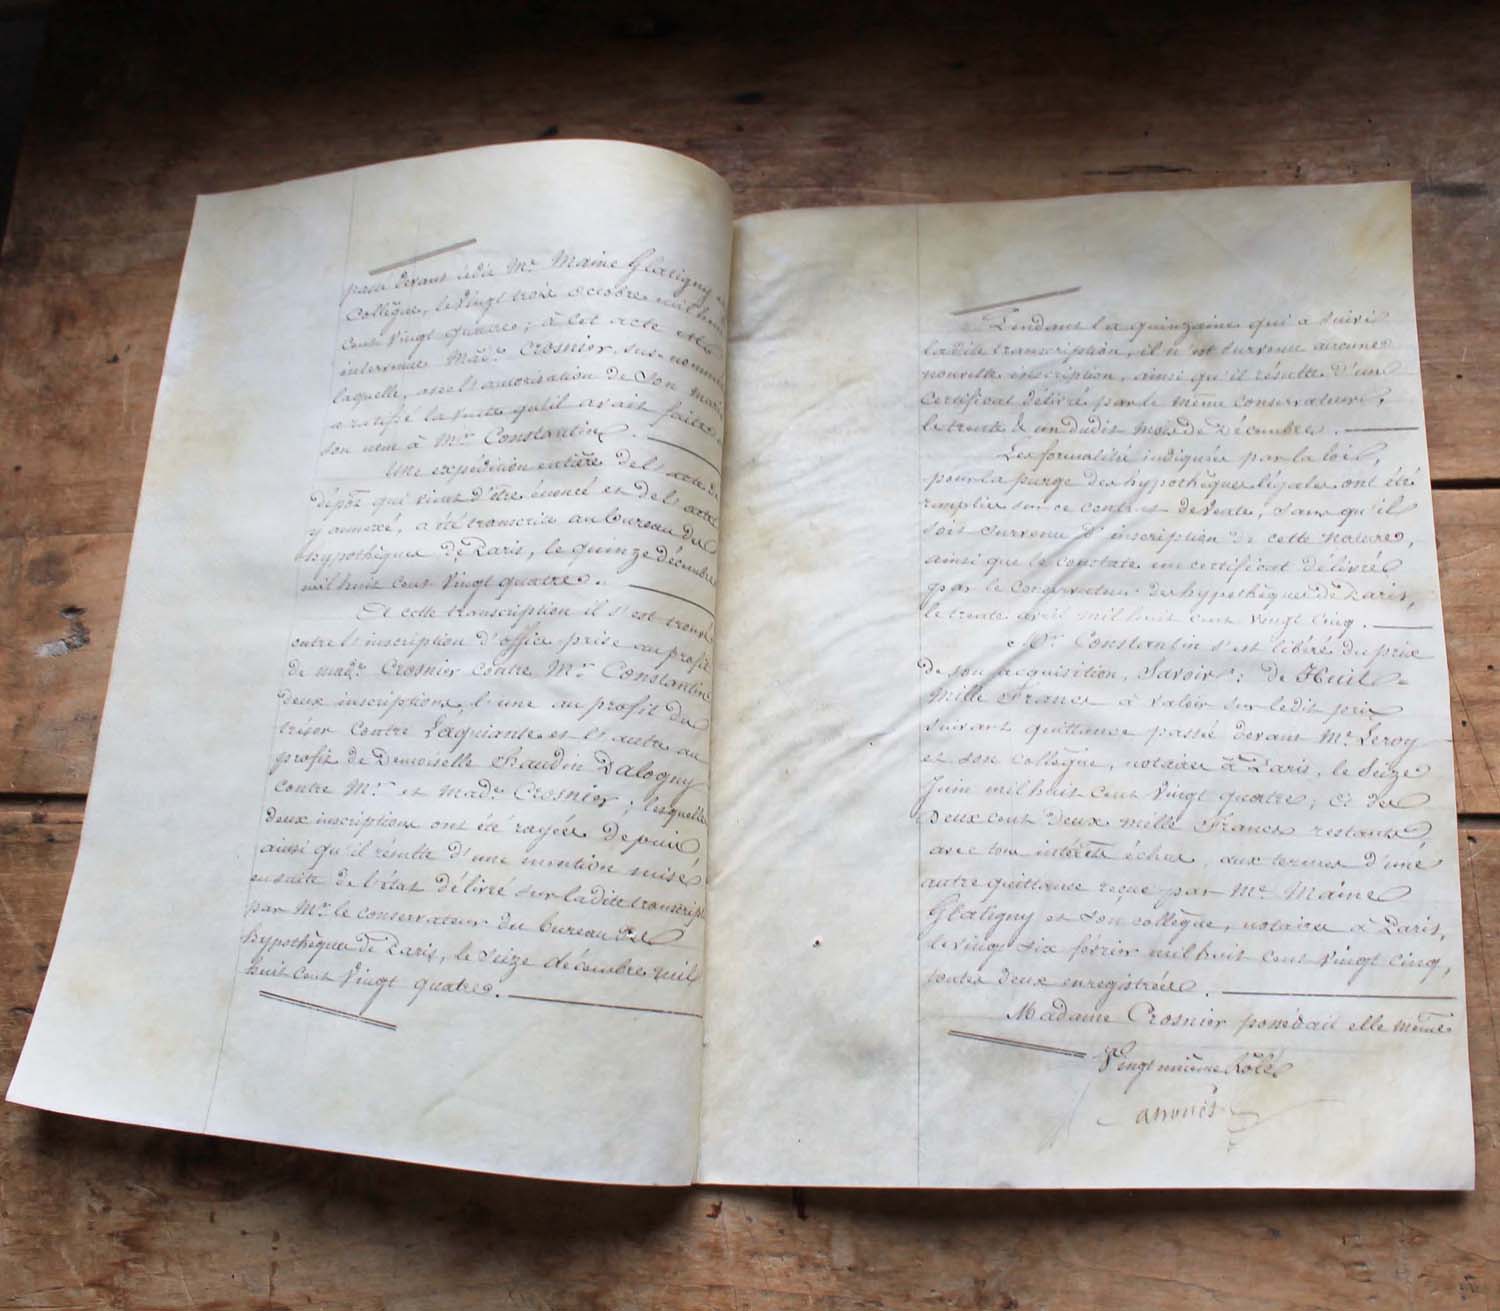 passé devant ledit Me Maine Glatigny et
Collègue, le Vingt trois octobre mil huit
cent Vingt quatre; à cet acte est
intervenue Made Crosnier, sus-nommée
laquelle, avec l'autorisation de Son mari
a ratifié la vente qu'il avait faite en
son nom à Mr Constantin.
Une expédition entière de l'acte de
dépôt qui vient d'être énoncé et de l'acte
y annexé, a été transcrite au bureau des
hypothèques de Paris, le quinze décembre
mil huit cent Vingt quatre.
A cette transcription il s'est trouvé
outre l'inscription d'office prise au profit
de made Crosnier contre Mr Constantin
deux inscriptions, l'une au profit du
trésor contre Laquiante et l'autre au
profit de Demoiselle Baudon Dalogny
contre Mr et made Crosnier; lesquelles
deux inscriptions ont été rayées depuis
ainsi qu'il résulte d'une mention mise
ensuite de l'état délivré sur ladite transcript.
par Mr le conservateur du bureau des
hypothèques de Paris, le Seize décembre mil
huit cent Vingt quatre.
Pendant la quinzaine qui a suivi
ladite transcription, il n'est survenu aucune
nouvelle inscription, ainsi qu'il résulte d'un
certificat délivré par le même conservateur,
le trente & un dudit mois de Décembre.
Les formalités indiquées par la loi,
pour la purge des hypothèques légales ont été
remplies sur ce contrat de Vente, sans qu'il
soit survenu d'inscription de cette nature,
ainsi que le constate un certificat délivré
par le conservateur des hypothèques de Paris,
le trente avril mil huit cent vingt cinq.
Mr Constantin s'est libéré du prix
de son acquisition, Savoir: de Huit
Mille Francs à valoir sur ledit prix
suivant quittance passée devant Me Leroy
et son collègue, notaires à Paris, le Seize
Juin mil huit cent Vingt quatre; Et des
Deux cent Deux mille Francs restants,
avec tous intérêts échus, aux termes d'une
autre quittance reçue par Me Maine
Glatigny et son collègue, notaires à Paris,
le vingt six février mil huit cent Vingt cinq,
toutes deux enregistrées.
Madame Crosnier possédait elle même
Vingt rôle